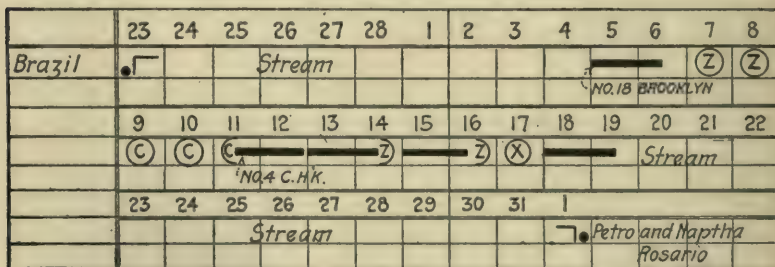 23 24 25 26 27 28 1 2 3 4 5 6 7 8
Brazil Stream Z Z
NO. 18 BROOKLYN
9 10 11 12 13 14 15 16 17 18 19 20 21 22
C C C Z Z X Stream
NO.4 C.H.K.
23 24 25 26 27 28 29 30 31 1
Stream Petro and Naptha
Rosario